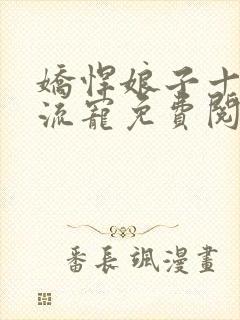 嬌悍娘子十
流寵免費閱
番長颯漫畫